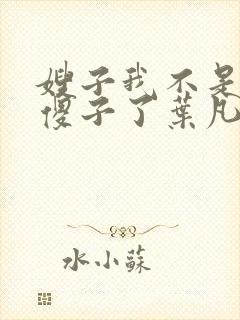 嫂子我不是
傻子了葉凡
水小蘇